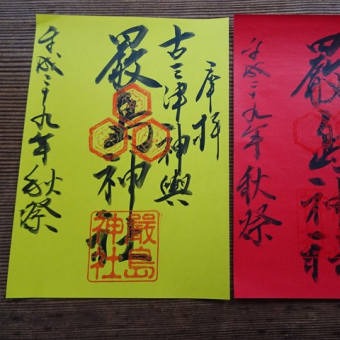 奉拝
古三津神輿
嚴島神社
嚴島
神社
平成二十九年秋祭
嚴島神社
平成二十九年秋祭